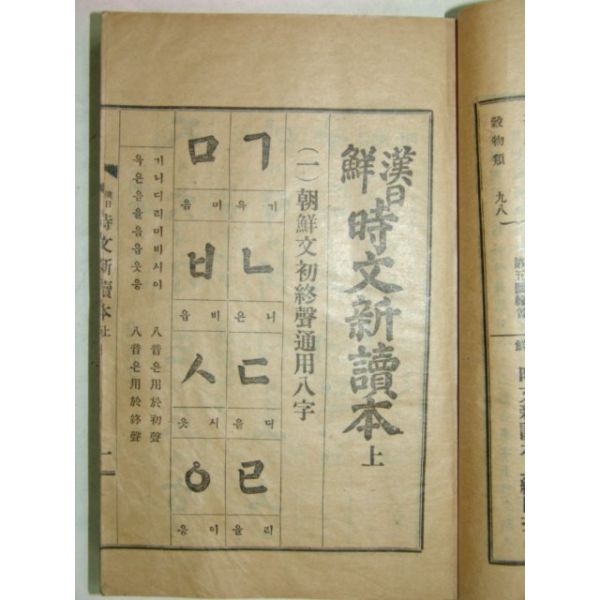 漢日鮮時文新讀本 上
(一) 朝鮮文初終聲通用八字
ㄱ
기 윽
ㄴ
니 은
ㄷ
디
ㄹ
리 을
ㅁ
미 음
ㅂ
비 읍
ㅅ
시 옷
ㅇ
이 응
기니디리미비시이 八音은用於初聲
八音은用於終聲
時文新讀本 上
一
穀物類 九八